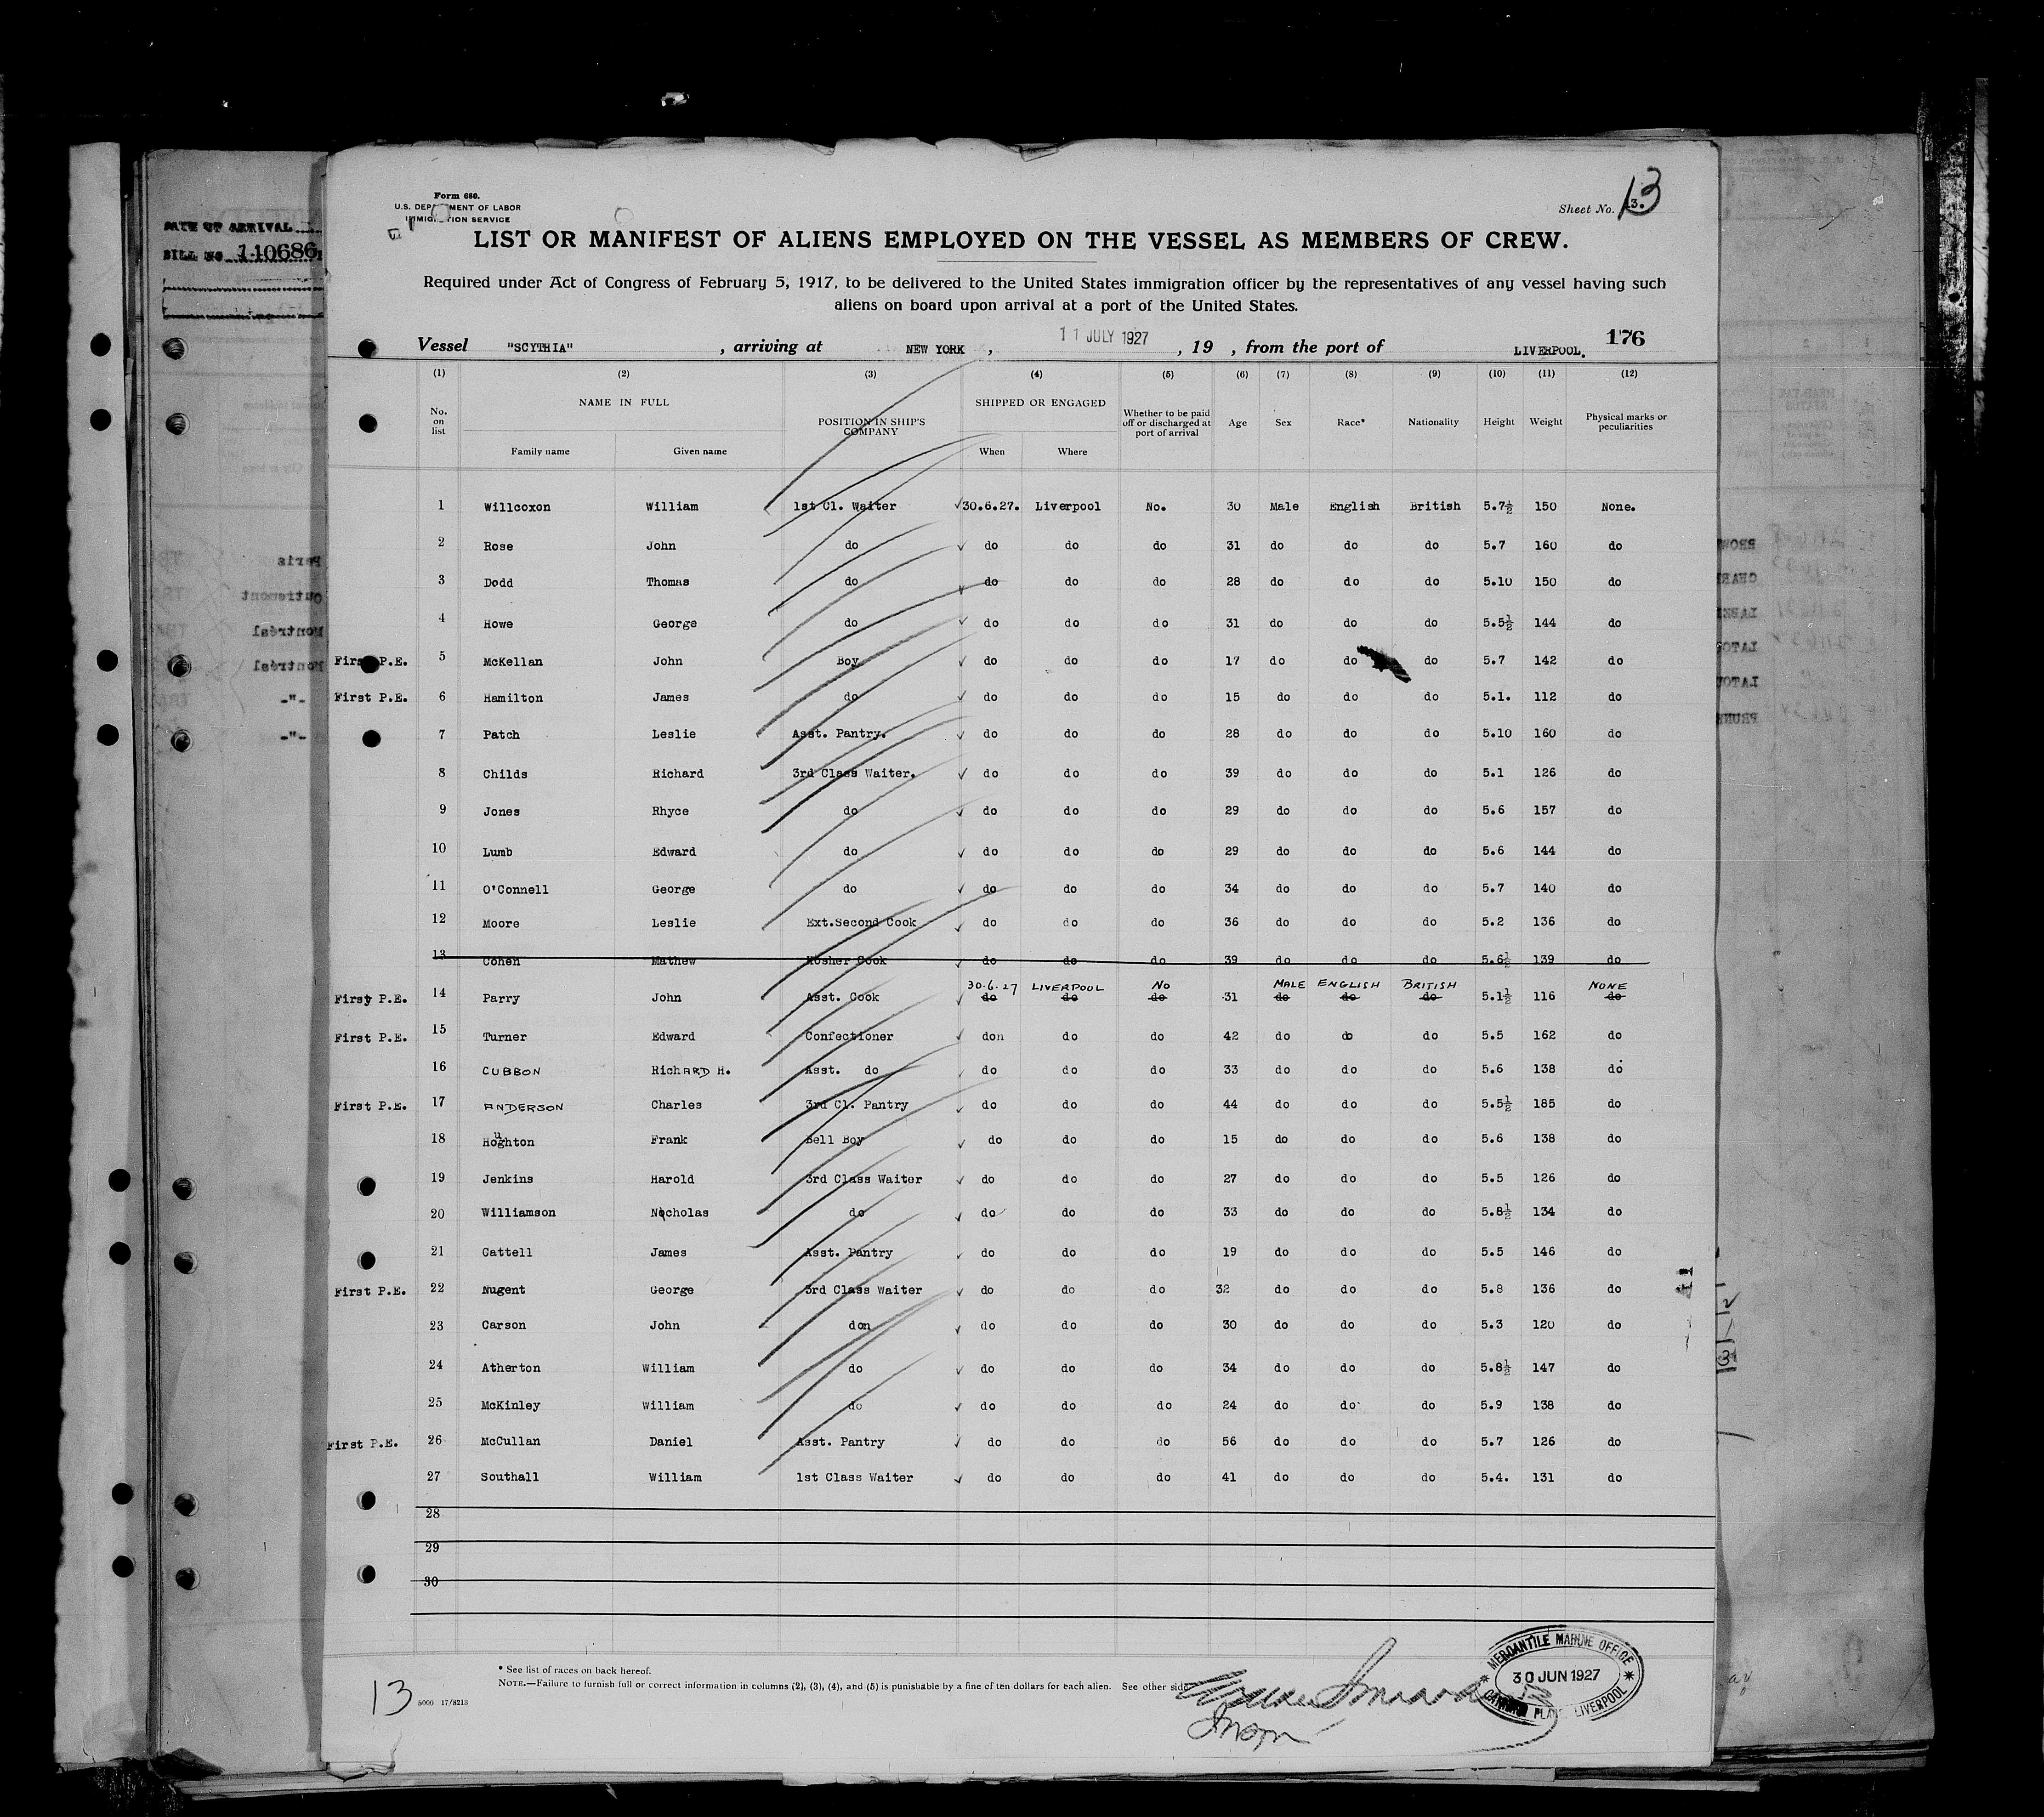 Form 680.
U.S. DEP MENT OF LABOR
IMMIG TION SERVICE
Sheet No. 13
DATE OF ARRIVAL
BILL NO 110686
LIST OR MANIFEST OF ALIENS EMPLOYED ON THE VESSEL AS MEMBERS OF CREW.
Required under Act of Congress of February 5, 1917, to be delivered to the United States immigration officer by the representatives of any vessel having such
aliens on board upon arrival at a port of the United States.
Vessel "SCYTHIA" , arriving at NEW YORK , 11 JULY 1927 , 19 , from the port of LIVERPOOL. 176
(1) (2) (3) (4) (5) (6) (7) (8) (9) (10) (11) (12)
No. on list NAME IN FULL POSITION IN SHIP'S COMPANY SHIPPED OR ENGAGED Whether to be paid off or discharged at port of arrival Age Sex Race* Nationality Height Weight Physical marks or peculiarities
Family name Given name When Where
1 Willcoxon William 1st Cl. Waiter ✓30.6.27. Liverpool No. 30 Male English British 5.7½ 150 None.
2 Rose John do ✓ do do do 31 do do do 5.7 160 do
3 Dodd Thomas do ✓ do do do 28 do do do 5.10 150 do
4 Howe George do ✓ do do do 31 do do do 5.5½ 144 do
First P.E. 5 McKellan John Boy ✓ do do do 17 do do do 5.7 142 do
First P.E. 6 Hamilton James do ✓ do do do 15 do do do 5.1. 112 do
7 Patch Leslie Asst. Pantry. ✓ do do do 28 do do do 5.10 160 do
8 Childs Richard 3rd Class Waiter. ✓ do do do 39 do do do 5.1 126 do
9 Jones Rhyce do ✓ do do do 29 do do do 5.6 157 do
10 Lumb Edward do ✓ do do do 29 do do do 5.6 144 do
11 O'Connell George do ✓ do do do 34 do do do 5.7 140 do
12 Moore Leslie Ext.Second Cook ✓ do do do 36 do do do 5.2 136 do
13 Cohen Mathew Kosher Cook ✓ do do do 39 do do do 5.6½ 139 do
30.6.27 LIVERPOOL No MALE ENGLISH BRITISH NONE
First P.E. 14 Parry John Asst. Cook ✓ do do do 31 do do do 5.1½ 116 do
First P.E. 15 Turner Edward Confectioner ✓ don do do 42 do do do 5.5 162 do
16 CUBBON RicHARD H. Asst. do ✓ do do do 33 do do do 5.6 138 do
First P.E. 17 ANDERSON Charles 3rd Cl. Pantry ✓ do do do 44 do do do 5.5½ 185 do
18 Houghton Frank Bell Boy ✓ do do do 15 do do do 5.6 138 do
19 Jenkins Harold 3rd Class Waiter ✓ do do do 27 do do do 5.5 126 do
20 Williamson Nicholas do ✓ do do do 33 do do do 5.8½ 134 do
21 Cattell James Asst. Pantry ✓ do do do 19 do do do 5.5 146 do
First P.E. 22 Nugent George 3rd Class Waiter ✓ do do do 32 do do do 5.8 136 do
23 Carson John don ✓ do do do 30 do do do 5.3 120 do
24 Atherton William do ✓ do do do 34 do do do 5.8½ 147 do
25 McKinley William do ✓ do do do 24 do do do 5.9 138 do
First P.E. 26 McCullan Daniel Asst. Pantry ✓ do do do 56 do do do 5.7 126 do
27 Southall William 1st Class Waiter ✓ do do do 41 do do do 5.4. 131 do
28
29
30
* See list of races on back hereof.
NOTE.—Failure to furnish full or correct information in columns (2), (3), (4), and (5) is punishable by a fine of ten dollars for each alien. See other side
13
5000 17/8213
MERCANTILE MARINE OFFICE
30 JUN 1927
PLACE LIVERPOOL
Paris
Outremont
Montréal
Montréal
-"-
-"-